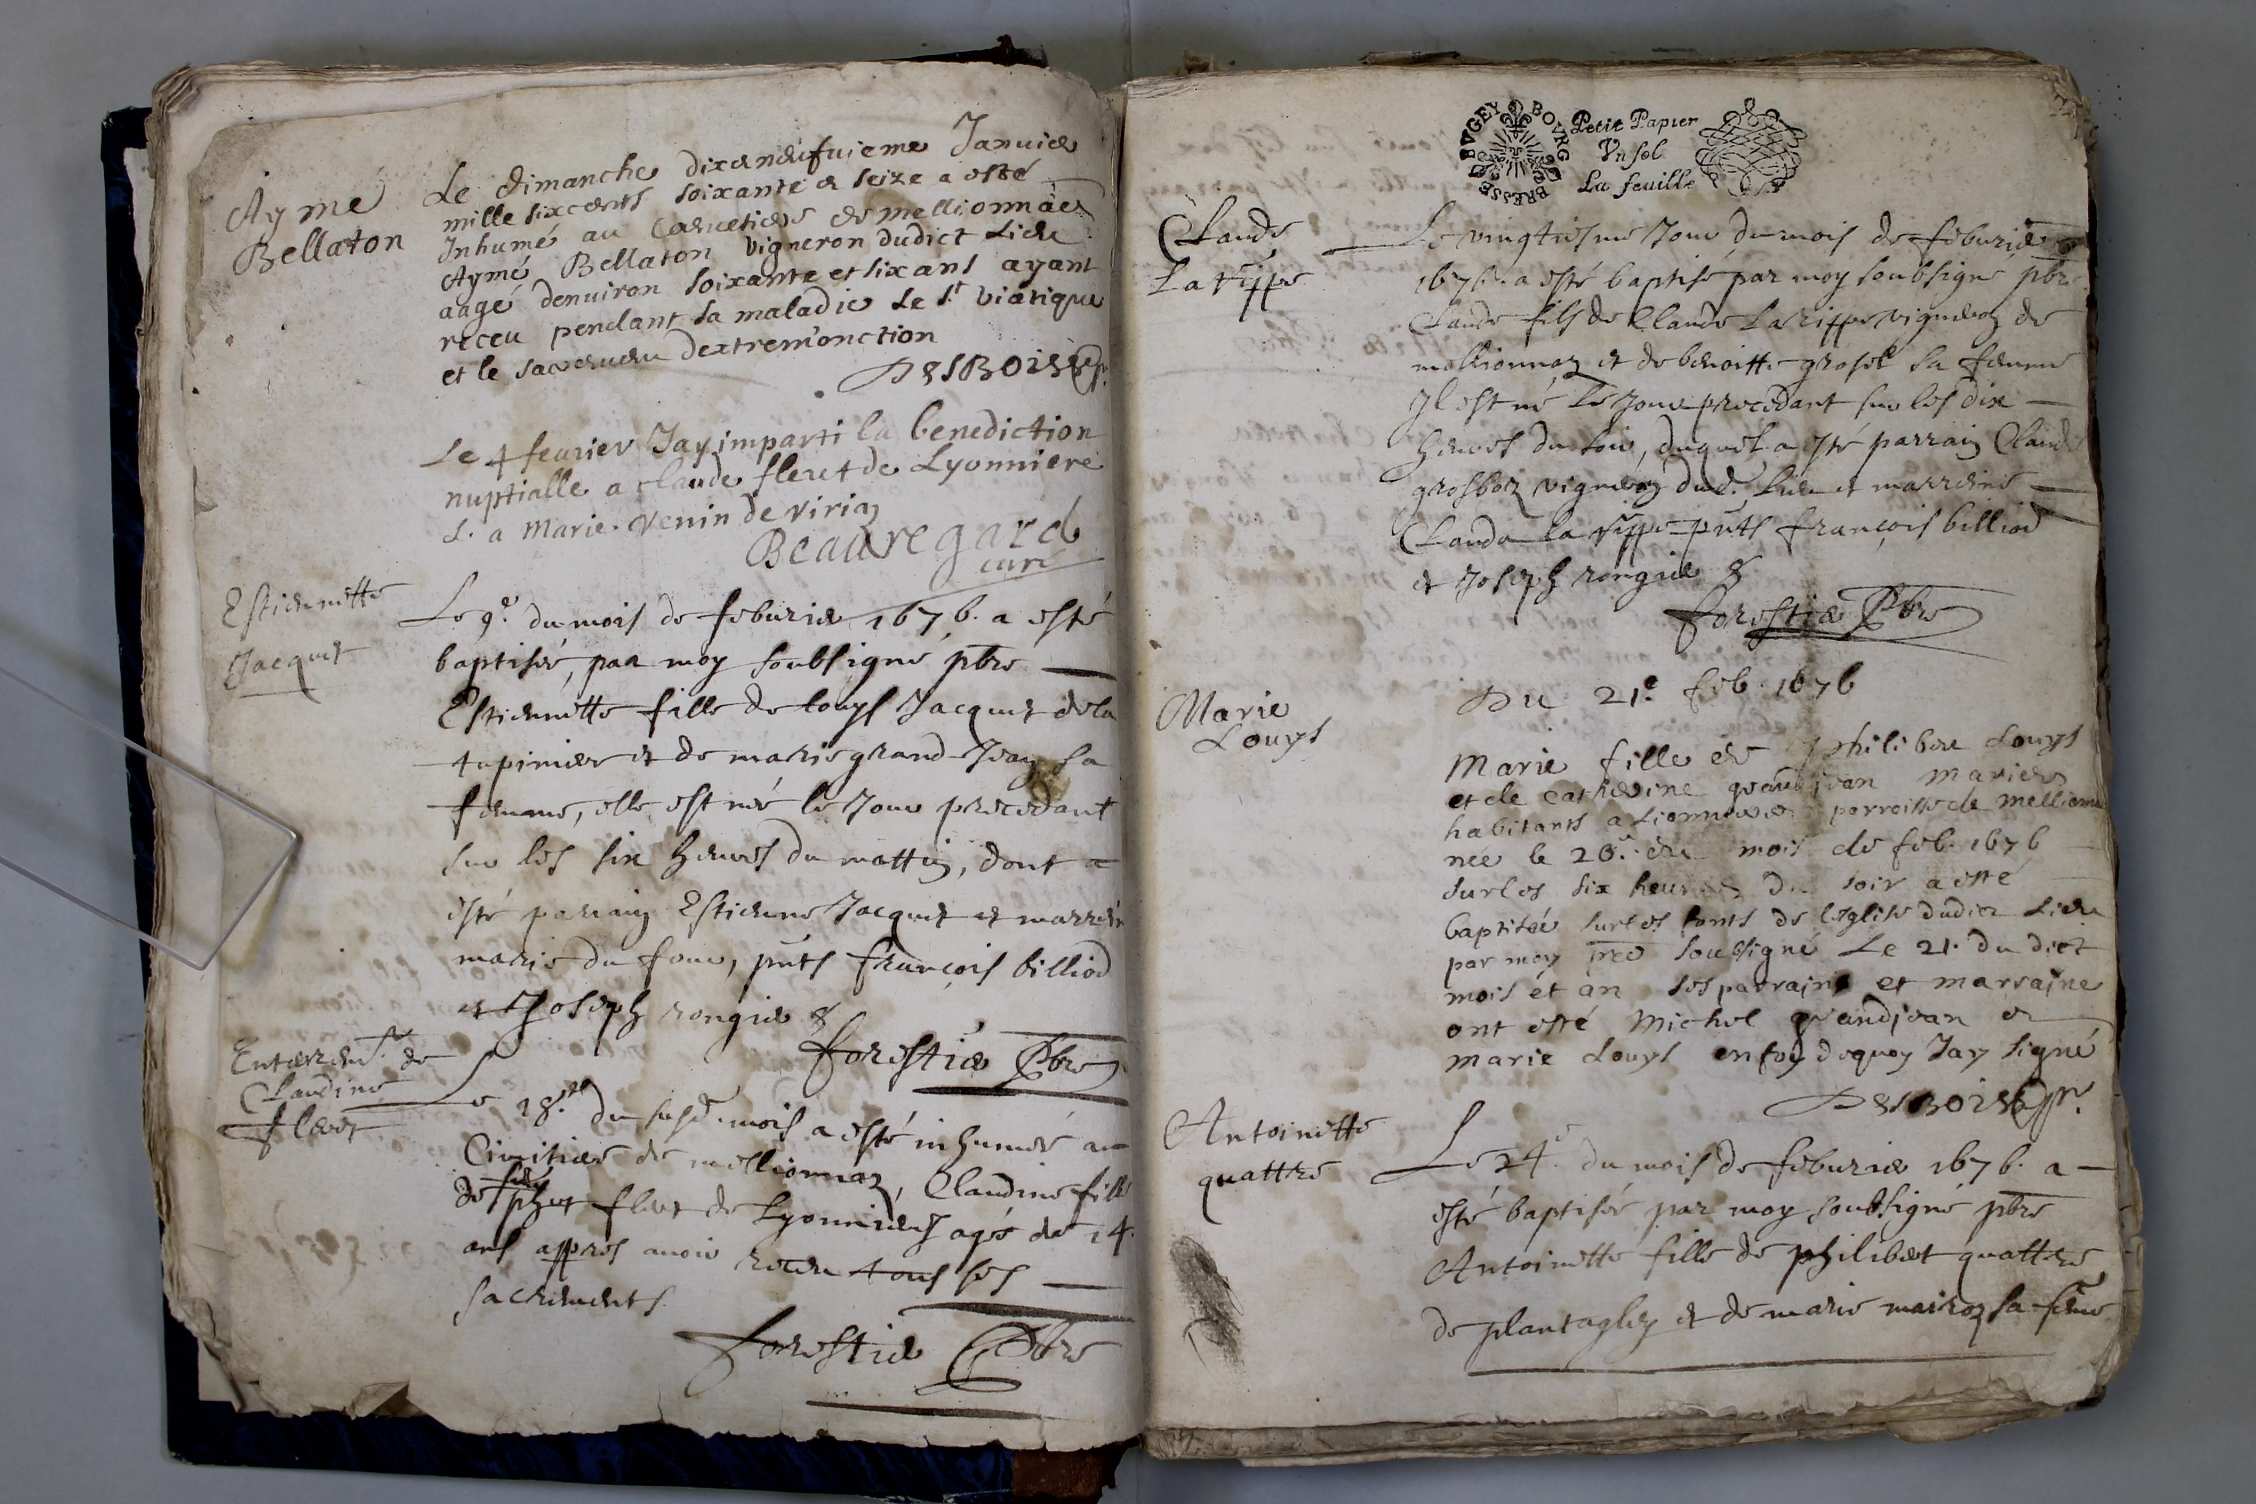 Aymé
Bellaton
Le dimanche dixendufuieme Januier
mille sixcents soixante et seize a esté
Inhumé au Cemetiere de mellionnaz
Aymé Bellaton vigneron dudict Lieu
aagé denuiron soixante et six ans ayant
receu pendant sa maladie Le st viatique
et le sacrement dextremonction
DesBois pr
Le 4 feurier Jay imparti la benediction
nuptialle a claude fleret de Lyonniere
L. a Marie venin de virian
Beauregard
curé
Estiennette
Jacquet
Le 9e du mois de feburier 1676. a esté
baptisée, par moy soubsigné pbre
Estiennette fille de louys Jacquet de la
tupinier et de marie grand Jean sa
femme, elle est née le Jour precedant
sur les six heures du mattin, dont a
esté parrain Estienne Jacquet et marrein
marie du four, pnts françois billiod
et Joseph rongier &
forestier Pbre
Enterremt de
Claudine
fleret
Le 18e du susd. mois a esté inhumée au
Cimitiere de mellionnaz, Claudine fille
de feu fleret de Lyonnieres agée de 14
ans appres auoir receu tous ses
sacrements
forestier Pbre
BRESSE BVGEY BOVRG
Petit Papier
Vn sol
La feuille
Claude
La rippe
Le vingtiesme Jour du mois de feburier
1676. a esté baptisé par moy soubsigné pbre
Claude fils de Claude Larippe vigneron de
mellionnaz et de benoitte grosel sa femme
Il est né Le Jour precedant sur les dix
heures du soir, duquel a esté parrain Claude
grosboz vigneron dud. Lieu et marreine
Clauda la rippe pnts françois billiod
et Joseph rongier &
forestier Pbre
Marie
Louys
Du 21e feb. 1676
Marie fille de philibert Louys
et de catherine grandjean mariez
habitants a Lionnieres parroisse de mellionna
née le 20e du mois de feb. 1676
sur les six heures du soir a esté
baptisée sur les fonts de leglise dudict Lieu
par moy pre soubsigné Le 21. du dict
mois et an ses parrain et marraine
ont esté Michel grandjean et
marie Louys en foy dequoy Jay signé
DesBois pr
Antoinette
quattre
Le 24e du mois de feburier 1676. a
esté baptisée par moy soubsigné pbre
Antoinette fille de philibert quattre
de plantaglay et de marie mairoz sa feme